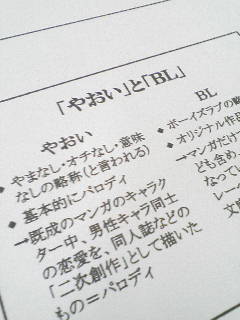 「やおい」と「BL」
やおい
◆ やまなし・オチなし・意味
なしの略称(と言われる)
◆ 基本的にパロディ
→既成のマンガのキャラク
ター中、男性キャラ同士
の恋愛を、同人誌などの
「二次創作」として描いた
もの＝パロディ
BL
◆ ボーイズラブの略
◆ オリジナル作
→マンガだけ
ども含め
なってい
レー
文